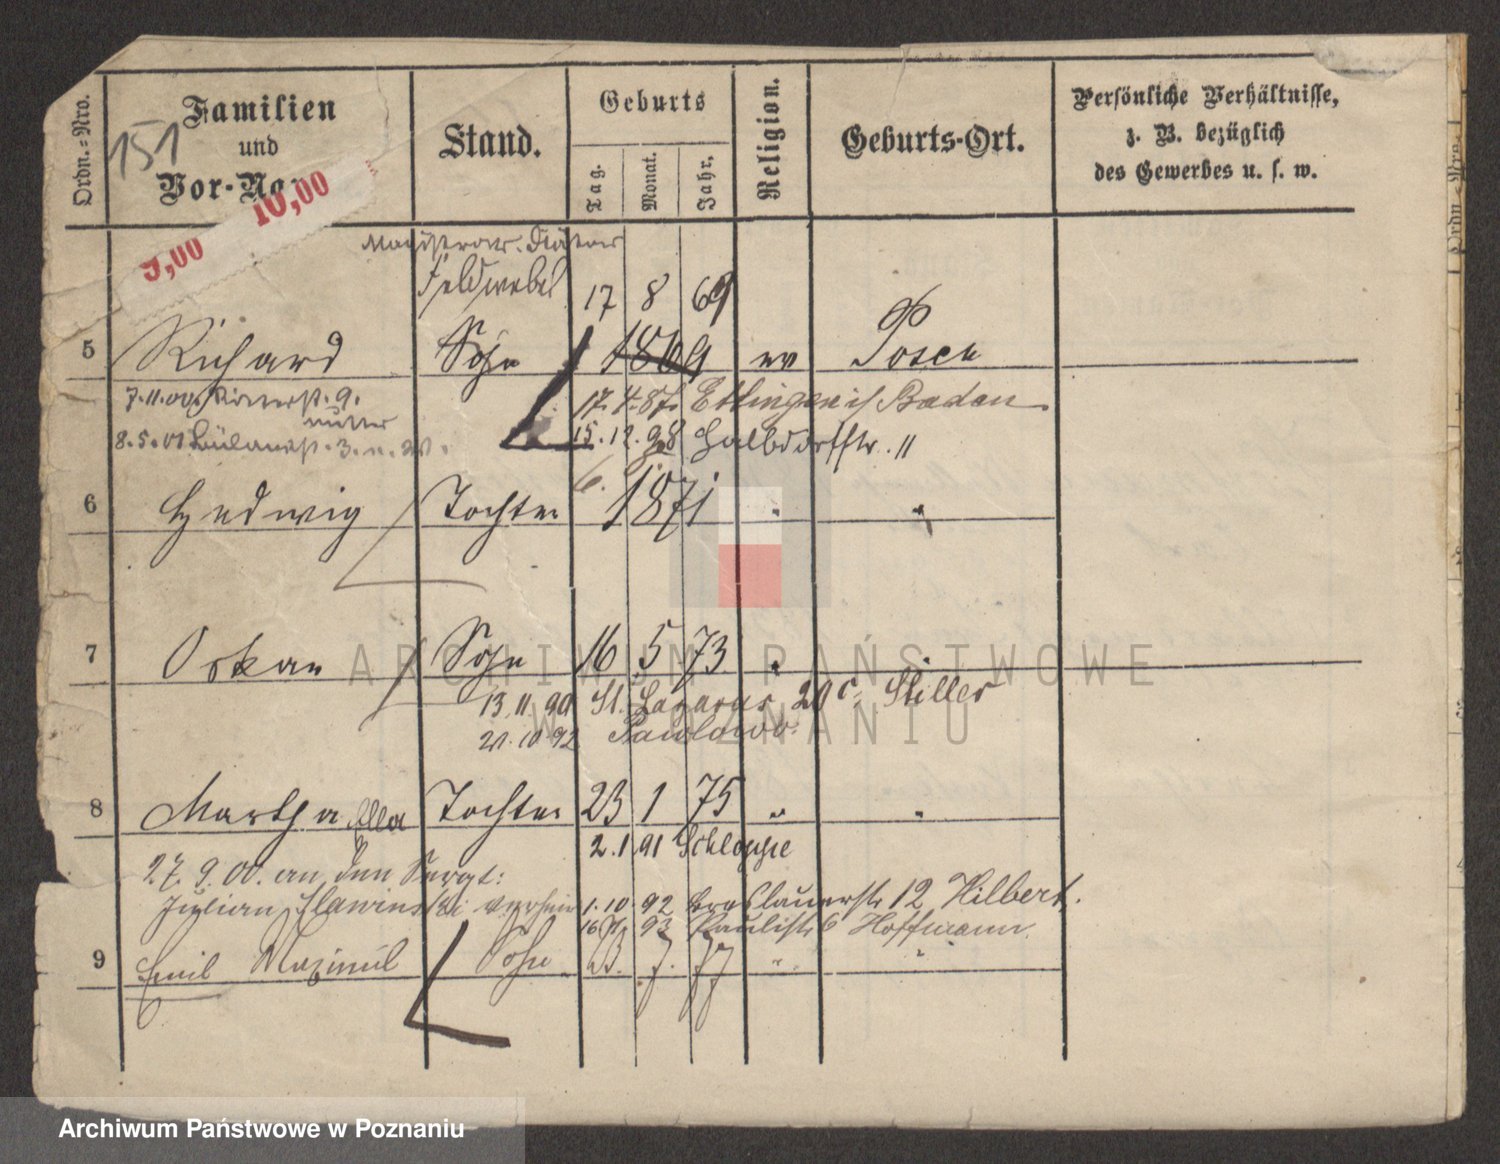 Ordn.=Nro.
Familien
und
Vor-Na
151
Stand.
Geburts
Tag.
Monat.
Jahr.
Religion.
Geburts-Ort.
Persönliche Verhältnisse,
z. B. bezüglich
des Gewerbes u. s. w.
10,00
5,00
Feldwebel
17 8 69
5 Richard Sohn 1869 ev Posen
17.4.87. Ettingen i/ Baden
15.12.98 Halbdorfstr. 11
8.5.01
6 Hedwig Tochter 6. 1871 " "
7 Oskar Sohn 16 5 73 " "
13.11.90 St. Lazarus 20 c. Stiller
21.10.92 Pawlowo.
8 Martha Ella Tochter 23 1 75 " "
2.1.91 Schloppe
27.9.00. an den Sergt:
1.10.92 Breslauerstr 12 Hilbert.
93 Paulistr 6 Hoffmann.
9 Emil Maximil Sohn 7. 77 " "
ARCHIWUM PAŃSTWOWE
W POZNANIU
Archiwum Państwowe w Poznaniu